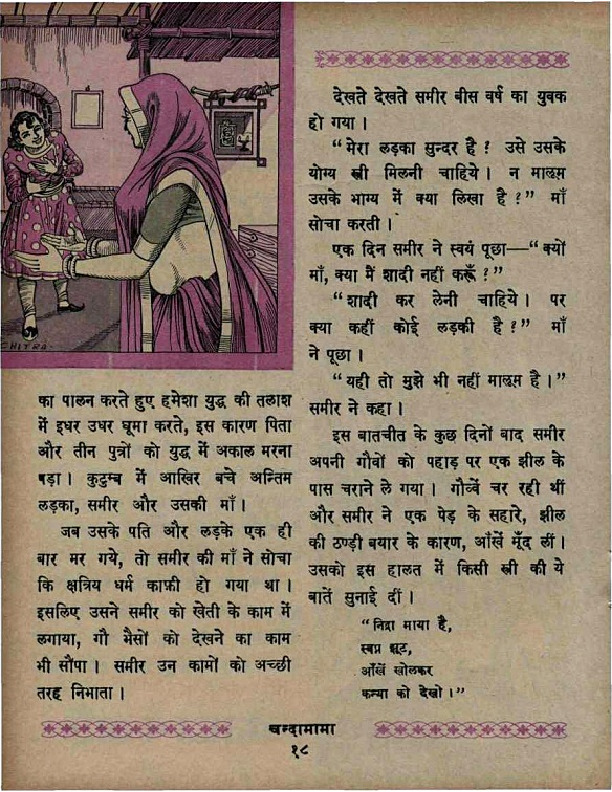 CHITRA
का पालन करते हुए हमेशा युद्ध की तलाश
में इधर उधर घूमा करते, इस कारण पिता
और तीन पुत्रों को युद्ध में अकाल मरना
पड़ा। कुटुम्ब में आखिर बचे अन्तिम
लड़का, समीर और उसकी माँ।
जब उसके पति और लड़के एक ही
बार मर गये, तो समीर की माँ ने सोचा
कि क्षत्रिय धर्म काफ़ी हो गया था।
इसलिए उसने समीर को खेती के काम में
लगाया, गौ भैसों को देखने का काम
भी सौंपा। समीर उन कामों को अच्छी
तरह निभाता।
देखते देखते समीर बीस वर्ष का युवक
हो गया।
"मेरा लड़का सुन्दर है? उसे उसके
योग्य स्त्री मिलनी चाहिये। न मालूम
उसके भाग्य में क्या लिखा है?" माँ
सोचा करती।
एक दिन समीर ने स्वयं पूछा—"क्यों
माँ, क्या मैं शादी नहीं करूँ?"
"शादी कर लेनी चाहिये। पर
क्या कहीं कोई लड़की है?" माँ
ने पूछा।
"यही तो मुझे भी नहीं मालूम है।"
समीर ने कहा।
इस बातचीत के कुछ दिनों बाद समीर
अपनी गौवों को पहाड़ पर एक झील के
पास चराने ले गया। गौव्वें चर रही थीं
और समीर ने एक पेड़ के सहारे, झील
की ठण्डी बयार के कारण, आँखें मूँद लीं।
उसको इस हालत में किसी स्त्री की ये
बातें सुनाई दीं।
"निद्रा माया है,
स्वप्न झूट,
आँखें खोलकर
कन्या को देखो।"
चन्दामामा
१८